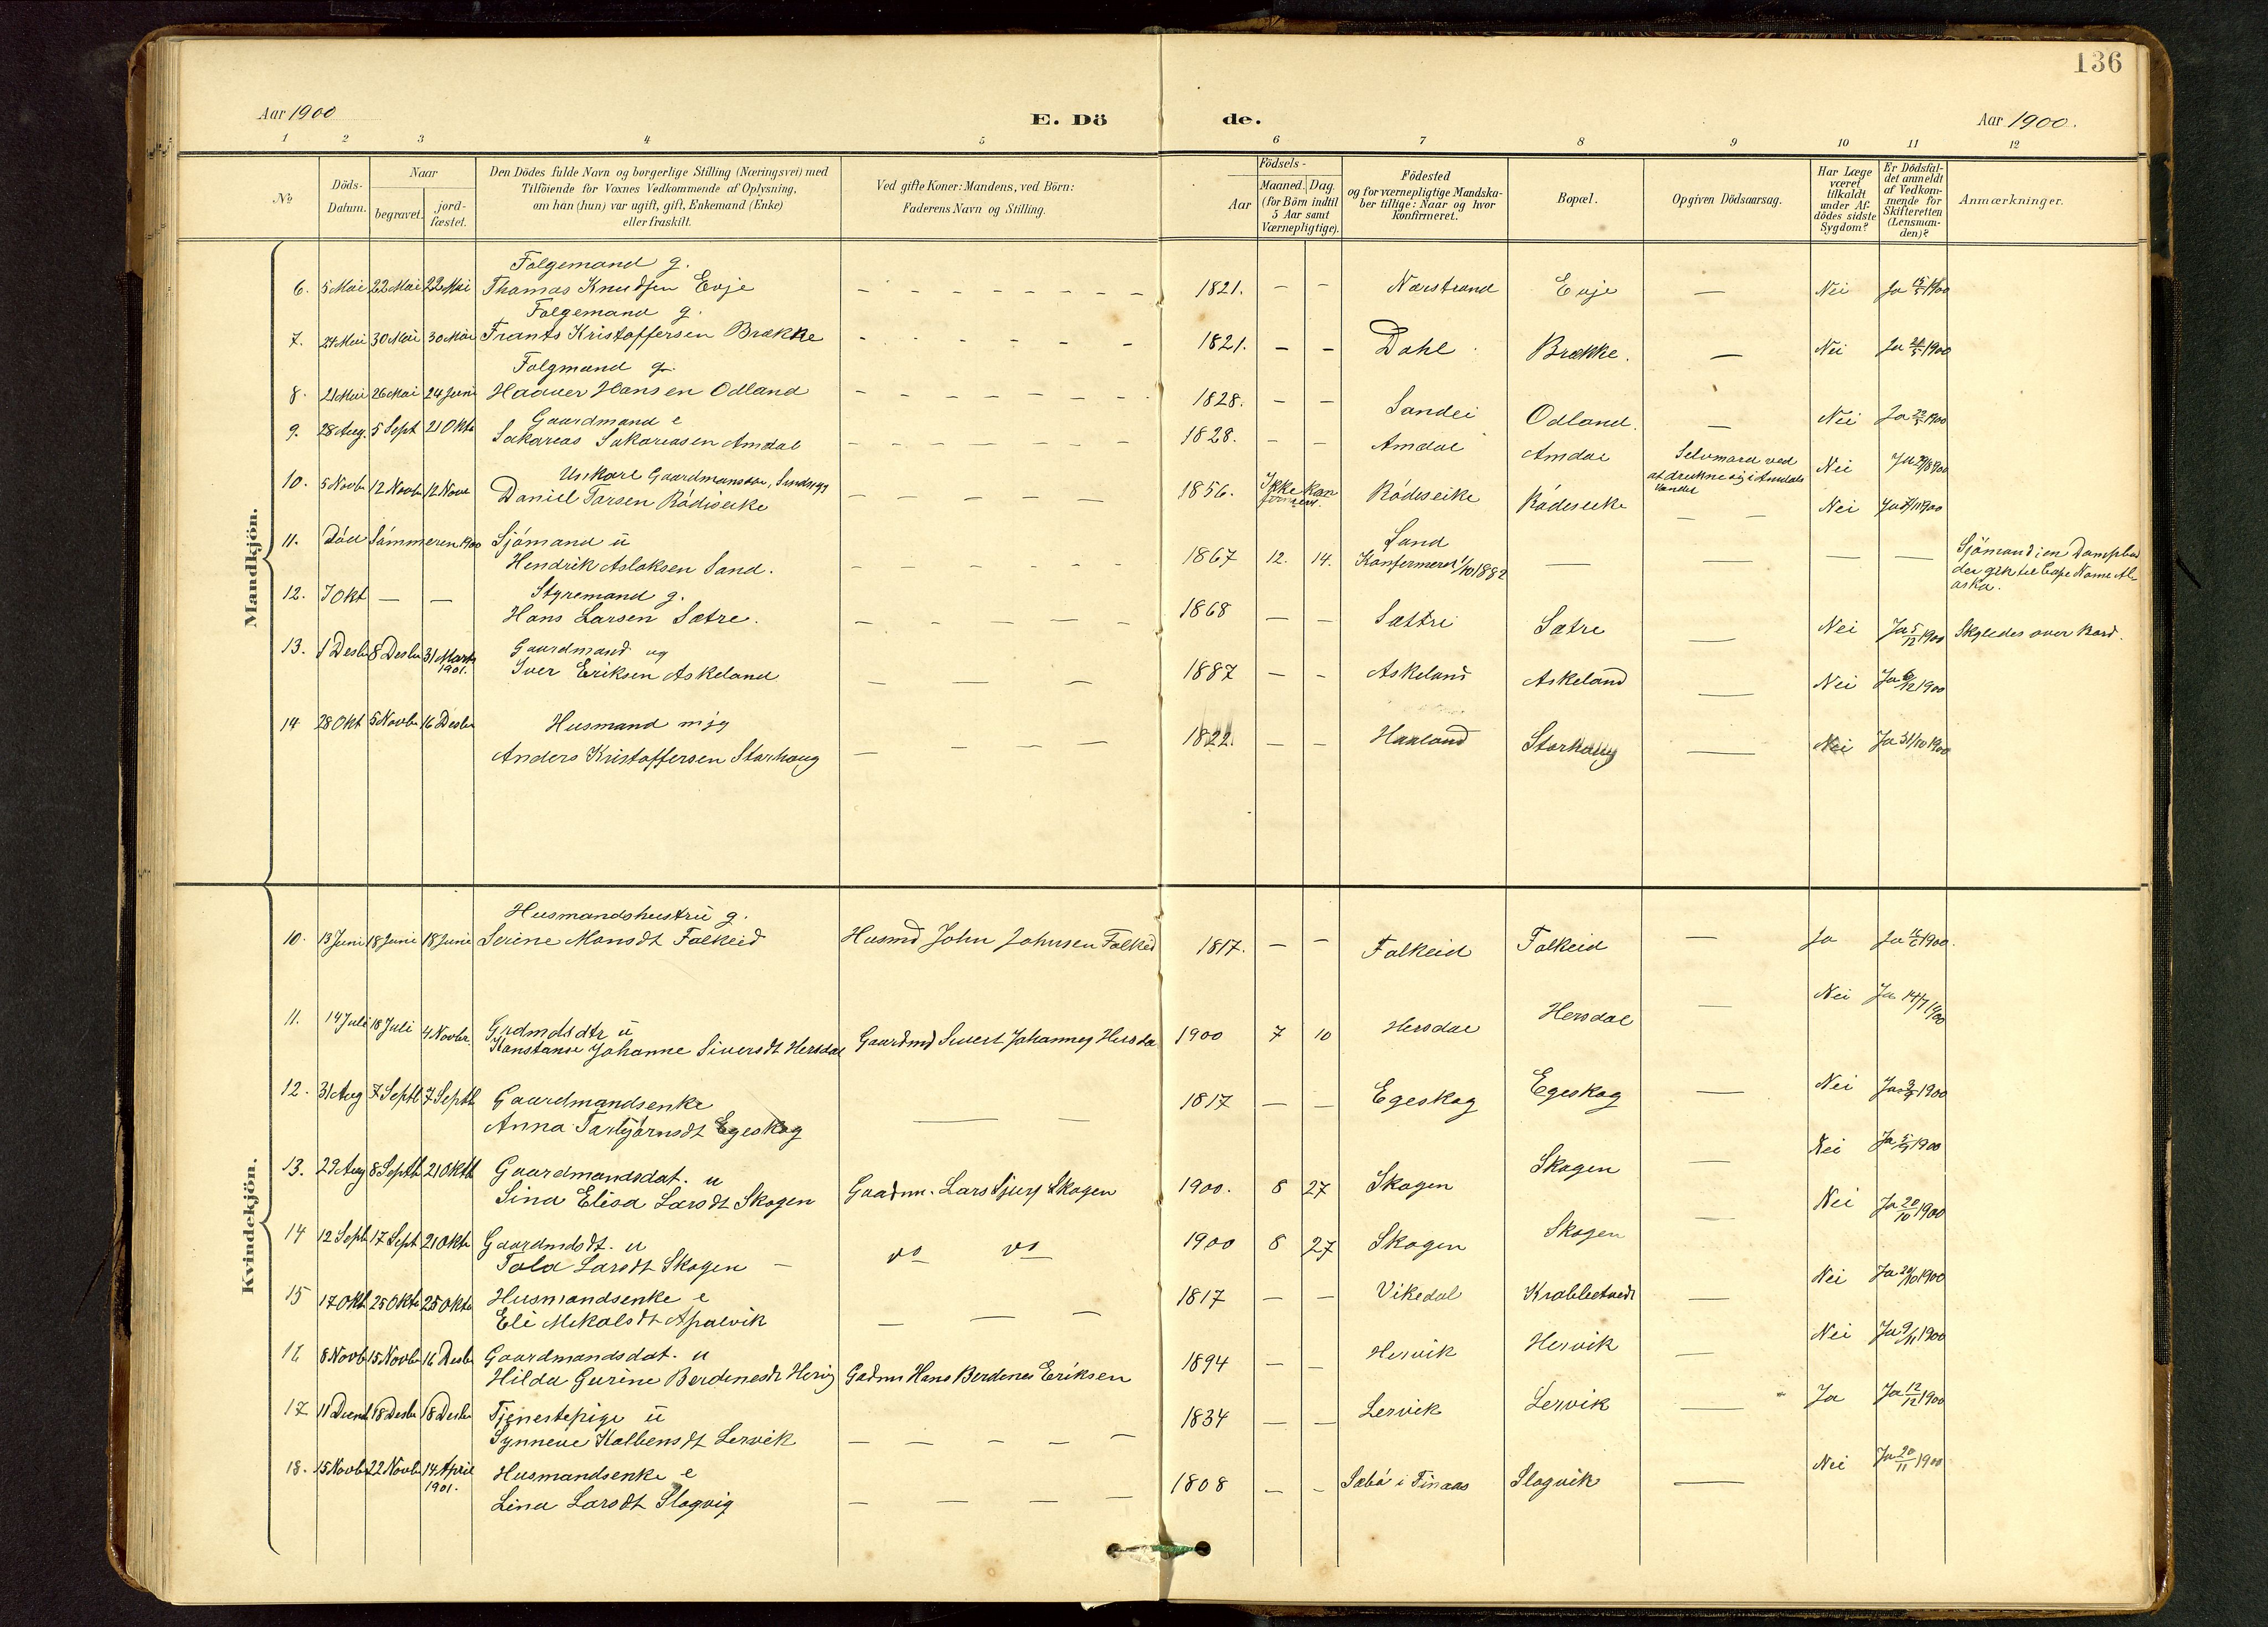 136
Aar 1900
E. Dö de.
Aar 1900.
1 2 3 4 5 6 7 8 9 10 11 12
No
Döds-Datum.
Naar
begravet.
jord-fæstet.
Den Dödes fulde Navn og borgerlige Stilling (Næringsvei) med
Tilföiende for Voxnes Vedkommende af Oplysning,
om han (hun) var ugift, gift, Enkemand (Enke)
eller fraskilt.
Ved gifte Koner: Mandens, ved Börn:
Faderens Navn og Stilling.
Födsels-
Aar
Maaned. Dag.
(for Börn indtil
5 Aar samt
Værnepligtige).
Födested
og for værnepligtige Mandska-
ber tillige: Naar og hvor
konfirmeret.
Bopæl.
Opgiven Dödsaarsag.
Har Læge
været
tilkaldt
under Af-
dödes sidste
Sygdom?
Er Dödsfal-
det anmeldt
af Vedkom-
mende for
Skifteretten
(Lensman-
den)?
Anmærkninger.
Mandkjön.
Folgemand g.
6. 5 Mai 22 Mai 22 Mai Thomas Knudsen Evje - - - - - - - - 1821. - - Narstrand Evje — Nei Ja 15/5 1900
Folgemand g.
7. 24 Mai 30 Mai 30 Mai Frants Kristoffersen Brække - - - - - - 1821. - - Dahl Brække. — Nei Ja 28/5 1900
Folgmand g.
8. 21 Mai 26 Mai 24 Juni Haaver Hansen Odland - - - - - - - 1828. - - Sandei Odland. — Nei Ja 23/5 1900
Gaardmand e
9. 28 Aug. 5 Sept 21 Okt Sakarias Sakariasen Amdal - - - - - - 1828. - - Amdal Amdal Selvmord ved
at drukne sig i Amdals
Vandet Nei Ja 29/8 1900
10. 5 Novb 12 Novb 12 Nove Daniel Torsen Rödiseike - - - - - 1856. Ikke kon
firmeret. Rödeseike Rödeseike — — Nei
11. Död Sommeren 1900 Sjömand u
Hendrik Aslaksen Sand. - - - - - - 1867 12. 14. Sand
Konfermeret 1/10 1882 — — — Sjömand i en Dampbaad
der gik til Cape Nome Al-
aska.
12. 7 Okt — — Styremand g.
Hans Larsen Sætre. - - - - - 1868 — — Sættri Sætre — Nei Ja 5/12 1900 Skylledes over Bord.
13. 1 Desbr 8 Desbr 31 Marts
1901. Gaardmand ug
Iver Eriksen Askeland — — — 1887 — - Askeland Askeland — Nei Ja 6/12 1900
14 28 Okt 5 Novbr 16 Desbr Husmand
Anders Kristoffersen Storhoug — — — — 1822. — — Hauland Storhaug — Nei Ja 31/10 1900
Kvindekjön.
Husmandshustru g.
10. 13 Juni 18 Juni 18 Juni Serine Monsdt Falkeid Husmd John Johnsen Falkeid 1817. - - Falkeid Falkeid — Ja Ja 16/6 1900.
11. 14 Juli 18 Juli 4 Novbr. Grdmdsdtr u
Konstanse Johanne Siversdt Hersdal Gaardmd Sivert Johannes Hersdal 1900 7 10 Hersdal Hersdal — Nei Ja 14/7 1900
12. 31 Aug 7 Septb 7 Septb Gaardmandsenke
Anna Torbjörnsdt Egeskog — — 1817 — — Egeskog Egeskog — Nei Ja 3/9 1900
13. 29 Aug 8 Septb 21 Oktb Gaardmandsdat. u
Sina Elisa Larsdt Skogen Gaadmn. Lars Sjurs Skogen 1900. 8 27 Skogen Skogen — Nei Ja 5/9 1900
14 12 Septb 17 Sept 21 Oktb Gaardmdsdt. u
Tola Larsdt Skogen — do do 1900 8 27 Skogen Skogen — Nei Ja 20/10 1900
15 17 Okt 25 Oktb 25 Oktb Husmandsenke e
Eli Mikalsdt Apalvik — — — 1817 — — Vikedal Krabbetvedt — Nei Ja 20/10 1900
16 8 Novb 15 Novb 16 Desbr Gaardmandsdat. u
Hilda Gurine Berdinesdt Hervig Gadmn Hans Berdenes Eriksen 1894 — — Hervik Hervik — Nei Ja 9/11 1900
17 11 Decmb 18 Desbr 18 Desbr Tjenestepige u
Synneve Kolbensdt Lervik — — — — — 1834 — — Lervik Lervik — Ja Ja 12/12 1900
18. 15 Novb 22 Novb 14 April
1901. Husmandsenke e
Lina Larsdt Slogvig — — — — 1808 — - Sæbö i Finaas Slogvik — Nei Ja 20/11 1900